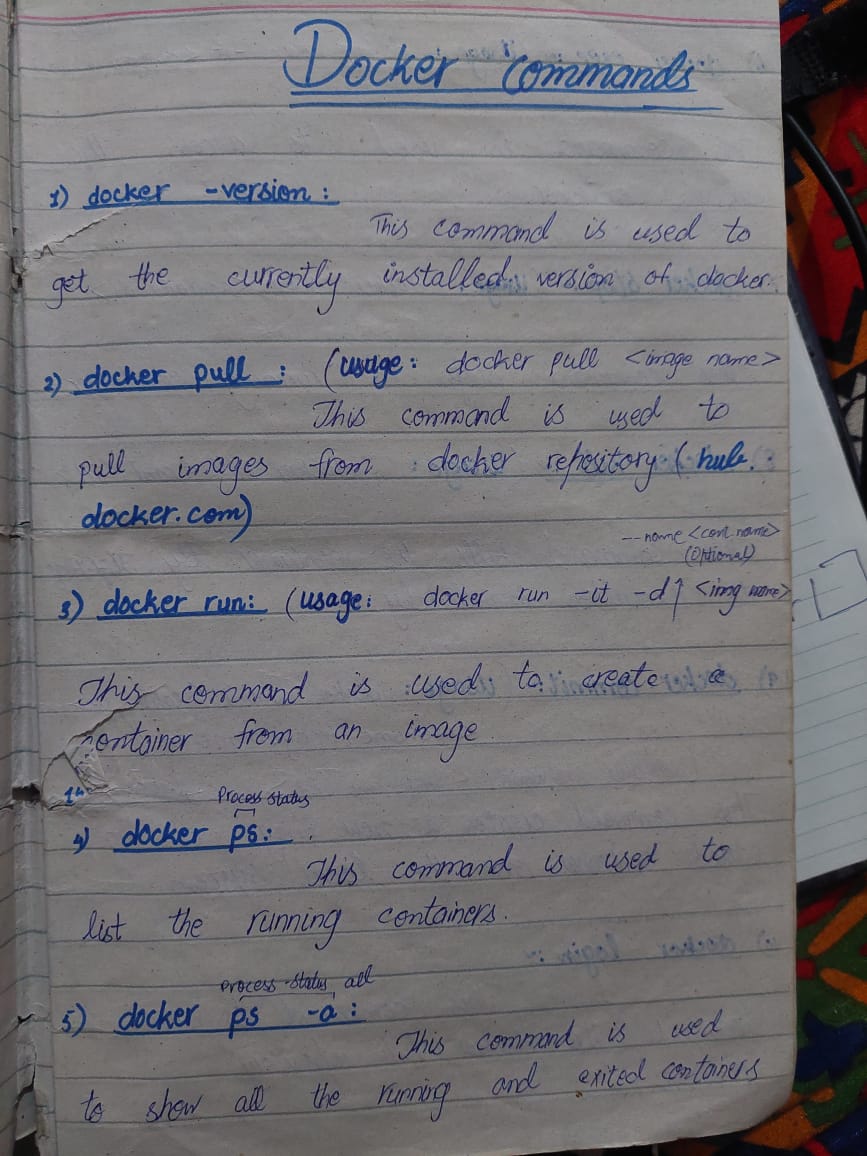 Docker Commands
1) docker -version :
This command is used to
get the currently installed version of docker.
2) docker pull : (usage: docker pull <image name>
This command is used to
pull images from docker repository (hub.
docker.com)
--name <cont.name>
(Optional)
3) docker run: (usage: docker run -it -d ↑ <img name>
This command is used to create a
container from an image
Process status
4) docker ps:
This command is used to
list the running containers.
Process status all
5) docker ps -a :
This command is used
to show all the running and exited containers